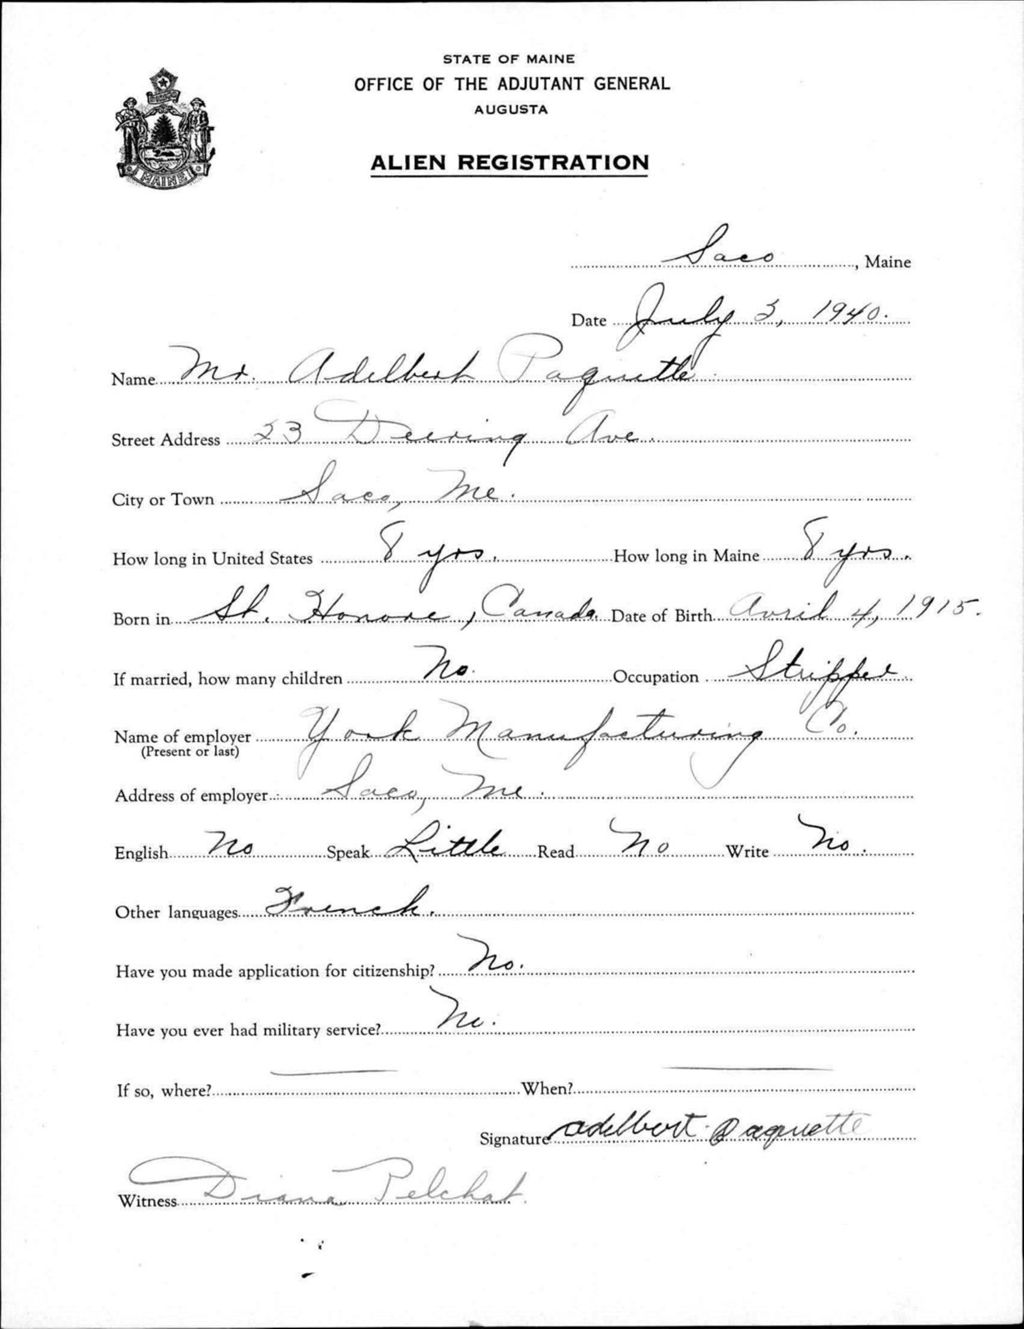 STATE OF MAINE
OFFICE OF THE ADJUTANT GENERAL
AUGUSTA
ALIEN REGISTRATION
MAINE
Saco, Maine
Date July 3, 1940.
Name Mr. Adelbert Paquette
Street Address 23 Deering Ave.
City or Town Saco, Me.
How long in United States 8 yrs. How long in Maine 8 yrs.
Born in St. Honore, Canada. Date of Birth April 4, 1915.
If married, how many children No. Occupation Stripper
Name of employer York Manufacturing Co.
(Present or last)
Address of employer Saco, Me.
English No Speak Little Read No Write No.
Other languages French.
Have you made application for citizenship? No.
Have you ever had military service? No.
If so, where? When?
Signature Adelbert Paquette
Witness Diana Pelchat